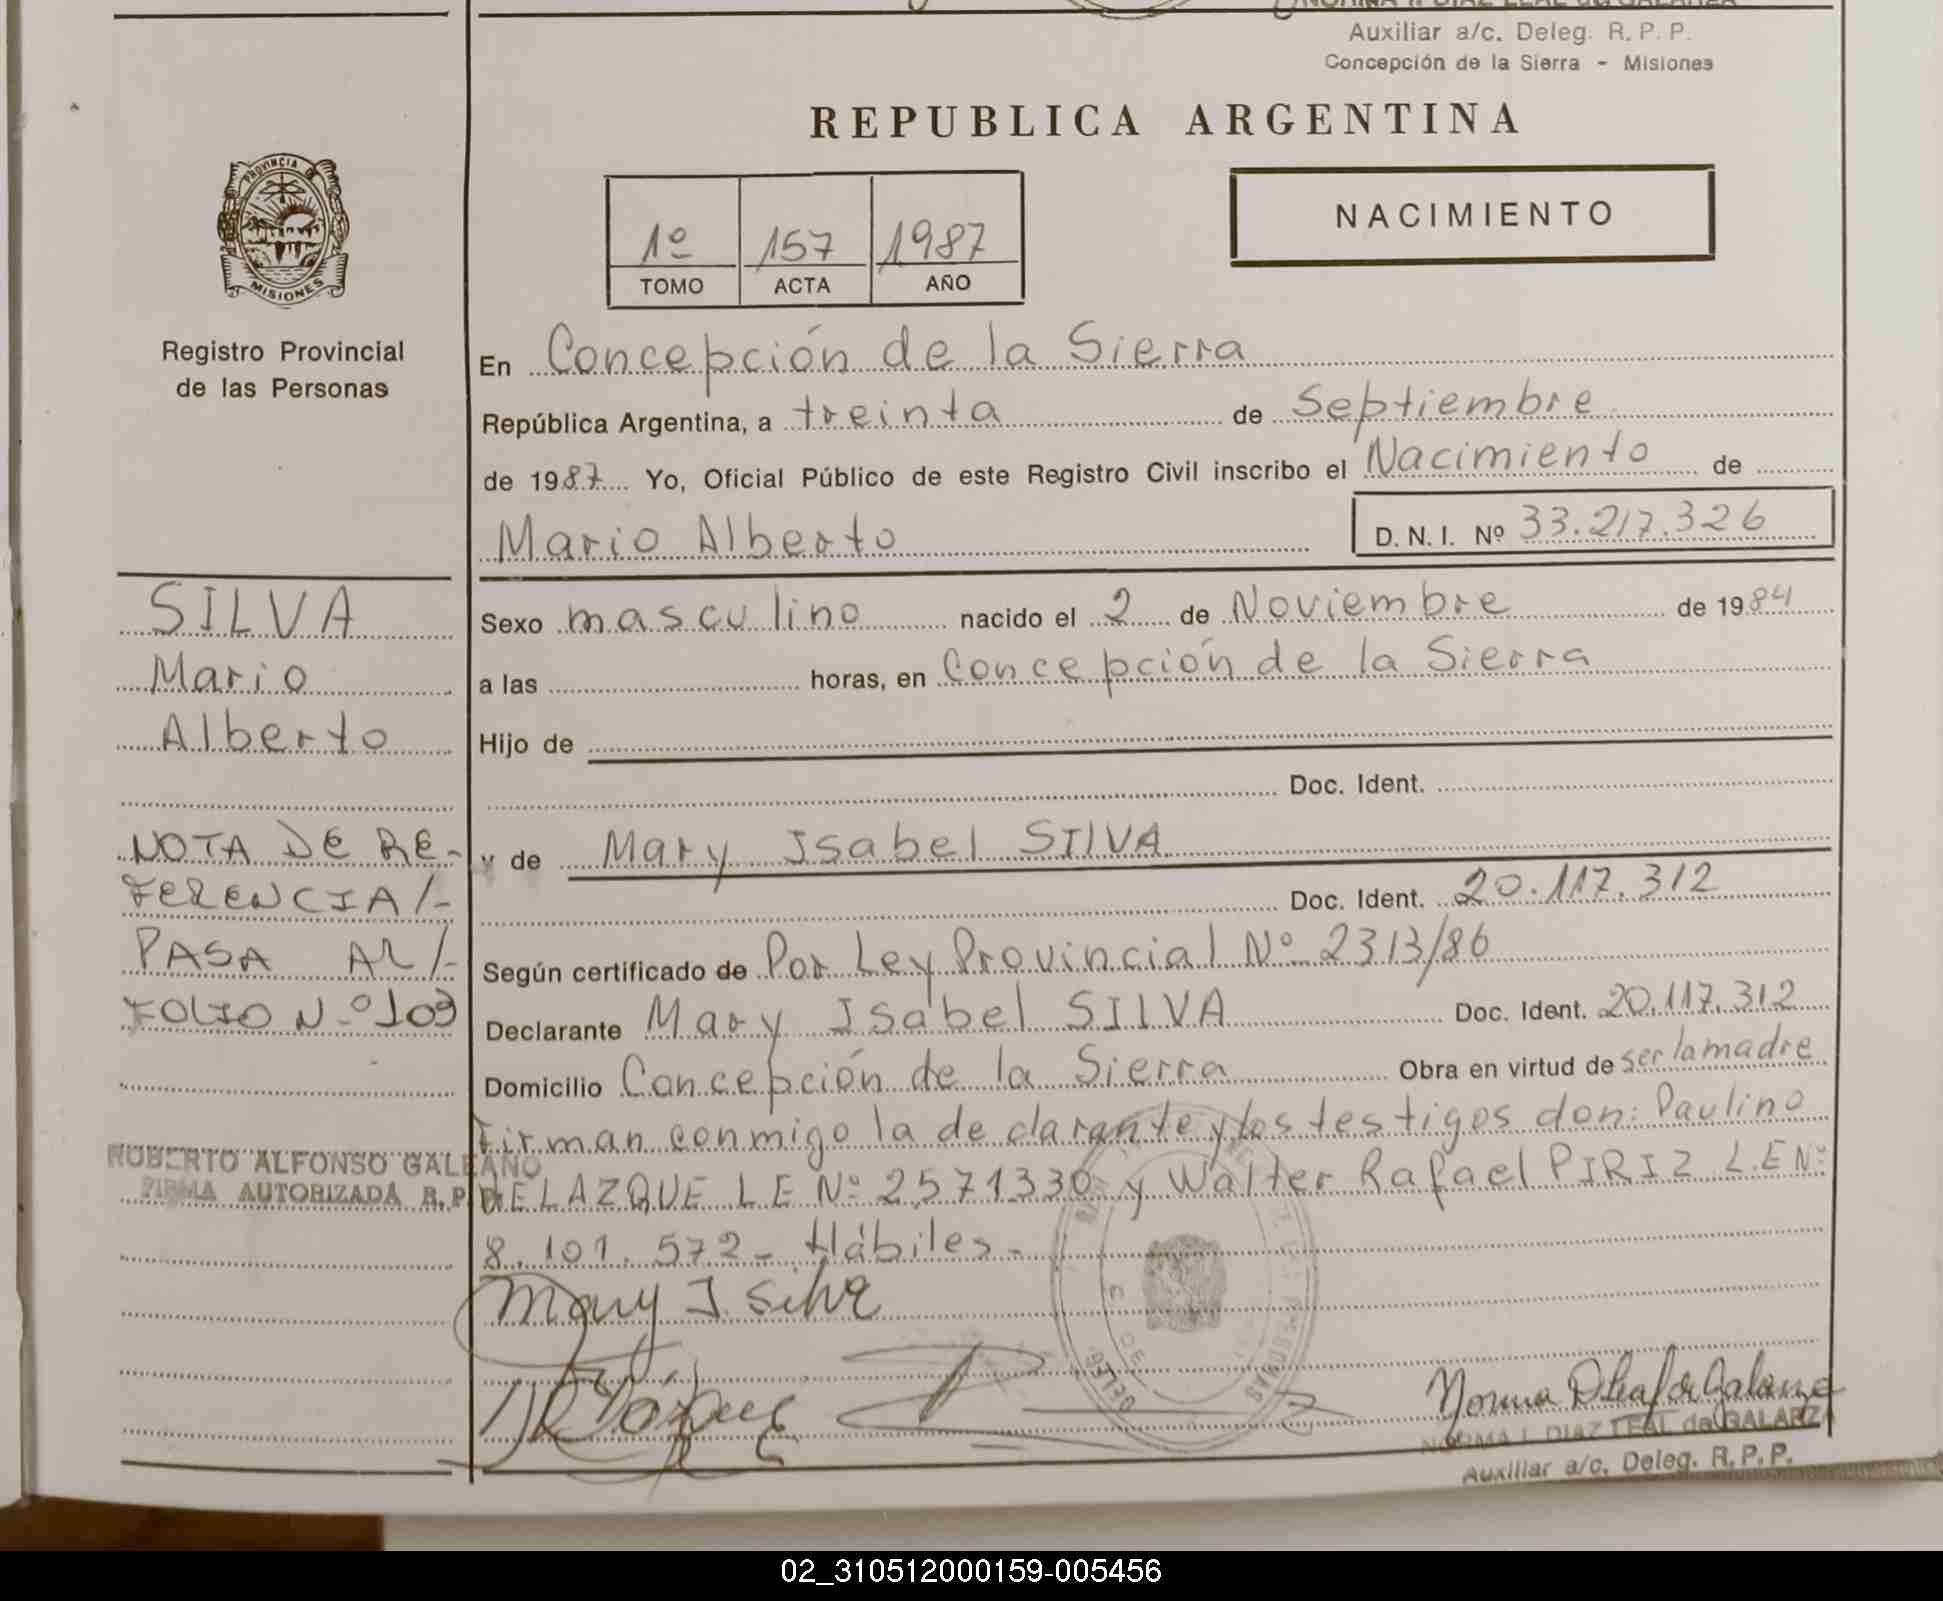 Auxiliar a/c. Deleg. R. P. P.
Concepción de la Sierra - Misiones
REPUBLICA ARGENTINA
PROVINCIA
MISIONES
1º 157 1987
TOMO ACTA AÑO
NACIMIENTO
Registro Provincial
de las Personas
En Concepción de la Sierra
República Argentina, a treinta de Septiembre
de 1987 Yo, Oficial Público de este Registro Civil inscribo el Nacimiento de
Mario Alberto D. N. I. Nº 33.217.326
SILVA
Mario
Alberto
NOTA DE RE-
FERENCIA/-
PASA AL/-
FOLIO N.º 109
ROBERTO ALFONSO GALEANO
FIRMA AUTORIZADA R. P. P.
Sexo masculino nacido el 2 de Noviembre de 1984
a las horas, en Concepción de la Sierra
Hijo de
Doc. Ident.
y de Mary Isabel SILVA
Doc. Ident. 20.117.312
Según certificado de Por Ley Provincial Nº 2313/86
Declarante Mary Isabel SILVA Doc. Ident. 20.117.312
Domicilio Concepción de la Sierra Obra en virtud de ser la madre
Firman conmigo la declarante y los testigos don: Paulino
VELAZQUE L E Nº 2.571330 y Walter Rafael PIRIZ L.E Nº
8.101.572- Hábiles.-
Mary I. Silva
Norma D Leal de Galarza
NORMA I. DIAZ LEAL de GALARZA
Auxiliar a/c. Deleg. R. P. P.
02_310512000159-005456